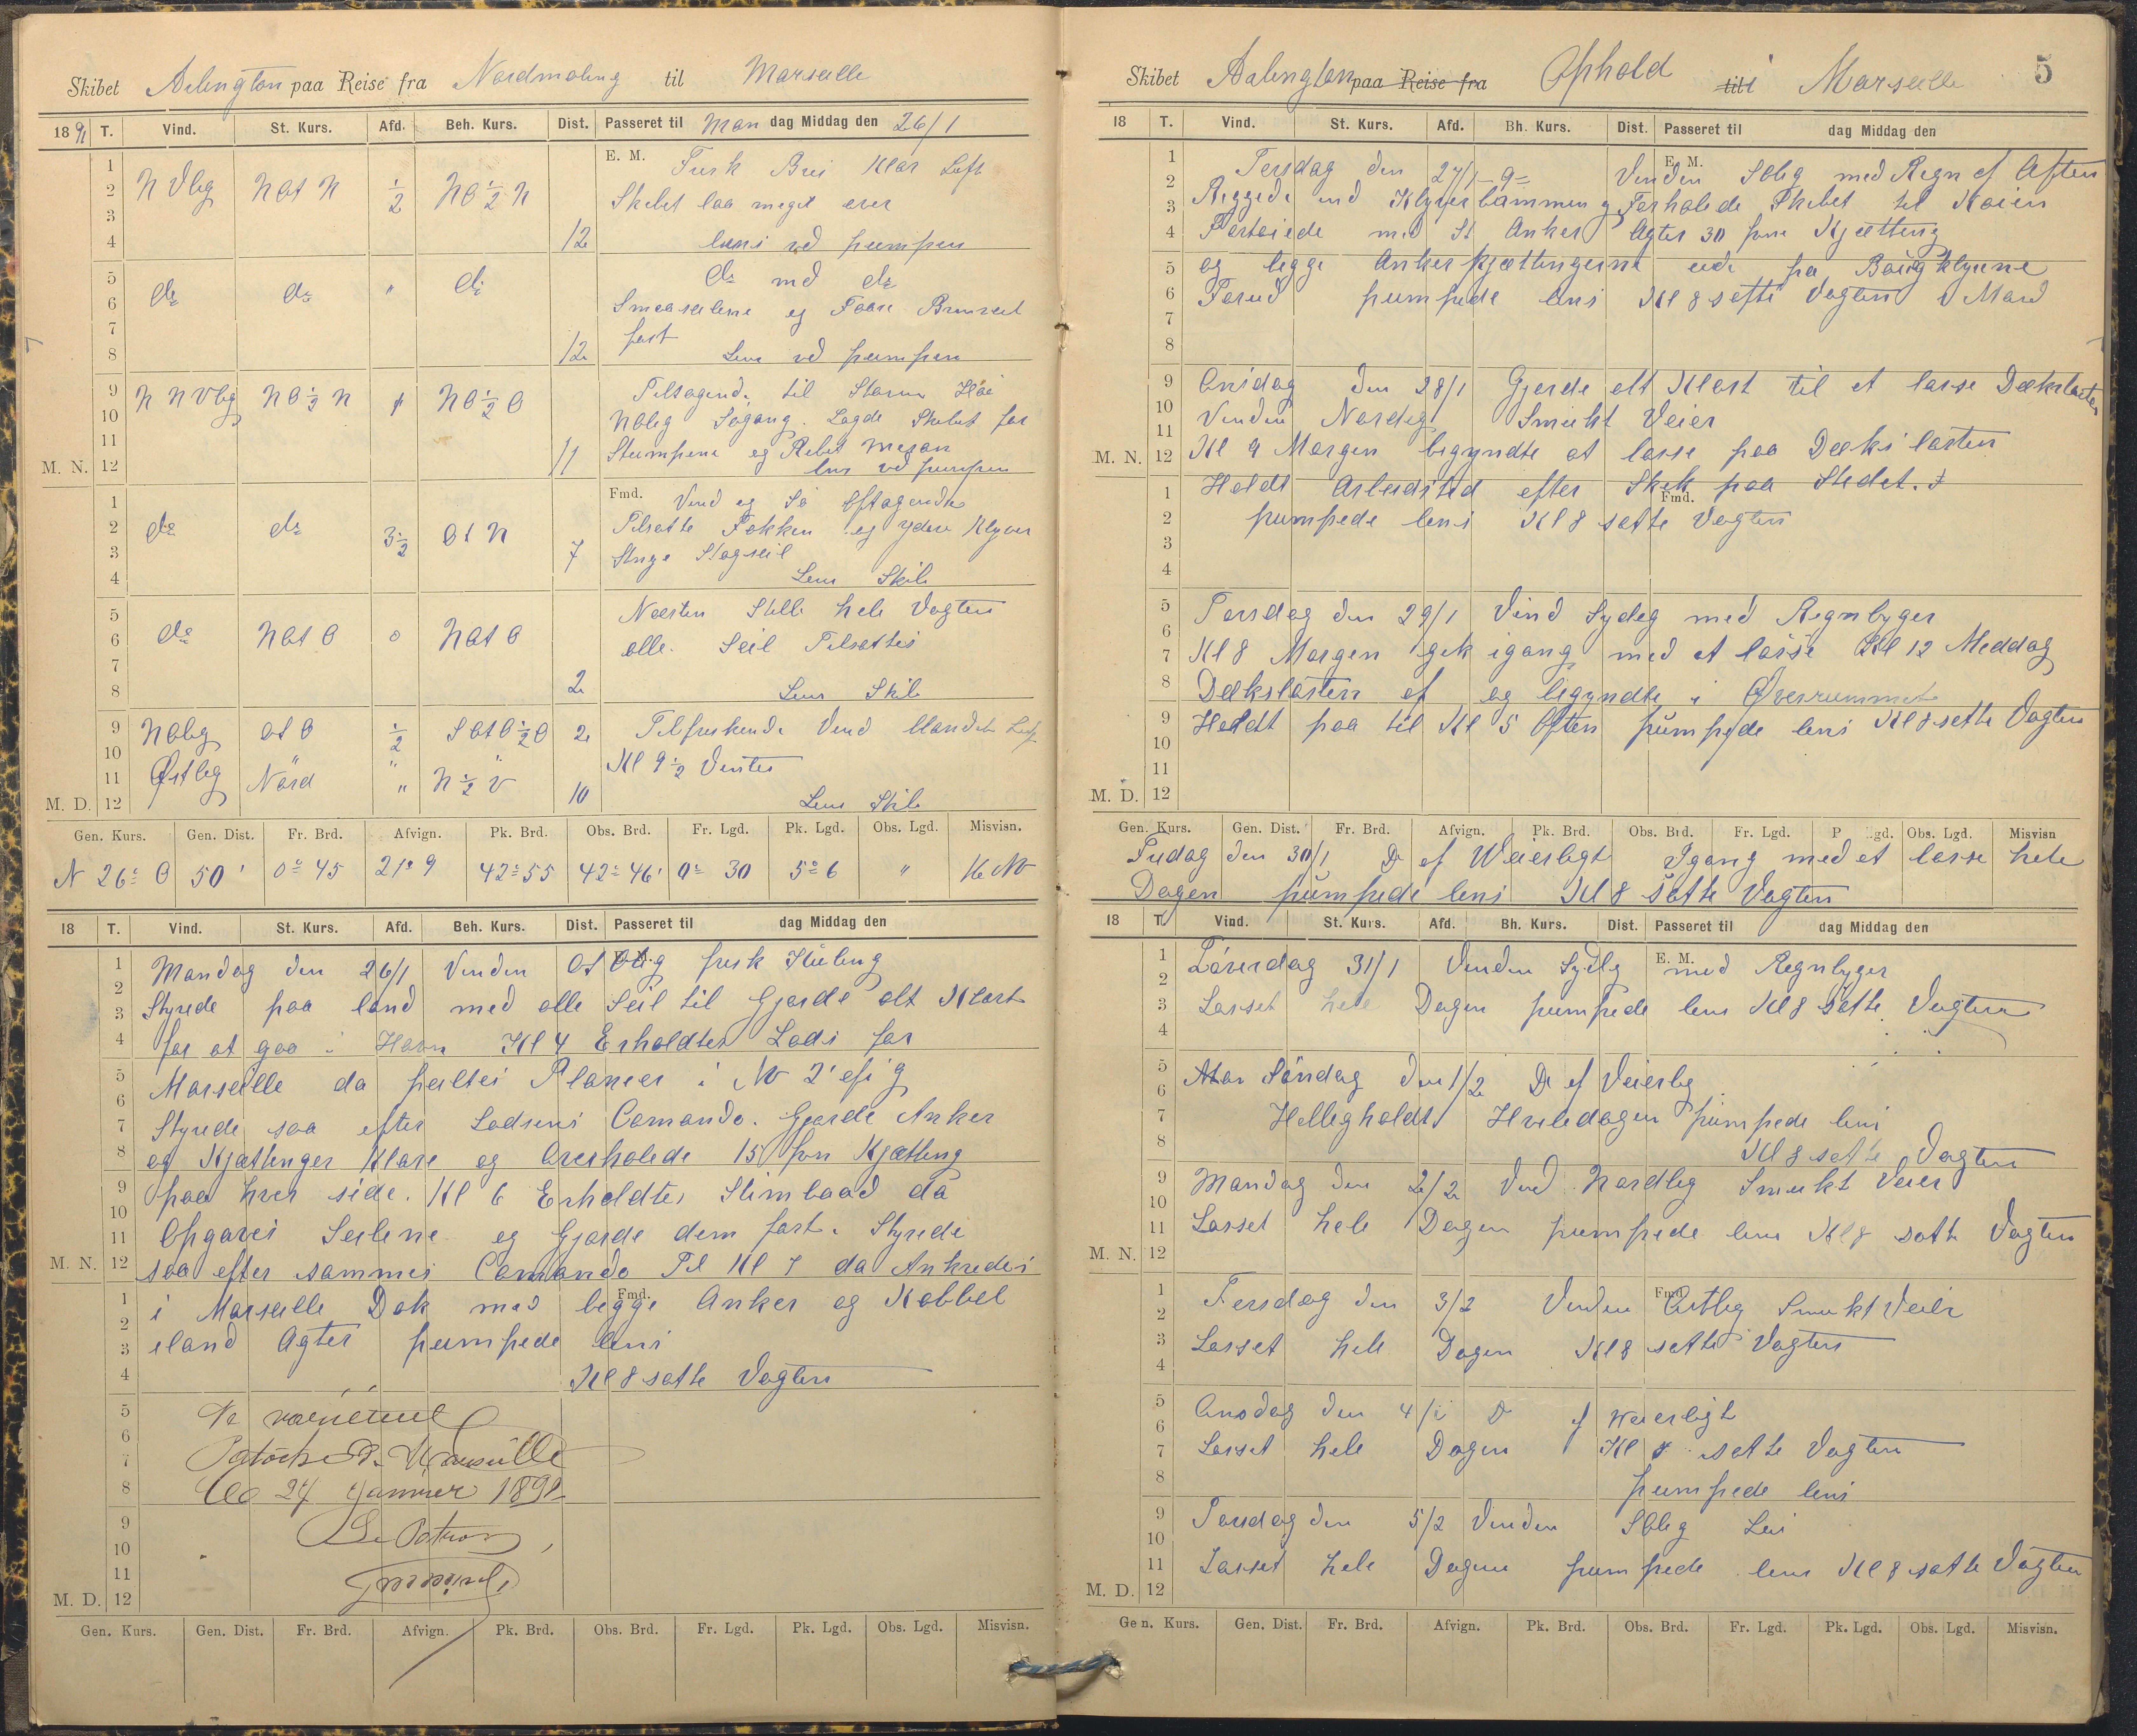 Skibet Arlington paa Reise fra Nordmaling til Marseille
1891 T. Vind. St. Kurs. Afd. Beh. Kurs. Dist. Passeret til Man dag Middag den 26/1
E. M. Frisk Bris Klar Luft
N Vlig NOt N 1/2 NO 1/2 N Skibet laa meget over
12 lens ved pumpen
do do " do do med do
Smaaseilene og Fast
12 Lens ved pumpen
N N Vlig NO 1/2 N NO 1/2 O Tiltagende til Storm Høi
NOlig Søgang. Lagde Skibet for
11 Stumpene og Rebet Mesan
M. N. 12 lens ved pumpen
Fmd. Vind og Sø Aftagende
do do 3 1/2 Ot N 7 Tilsatte Fokken og ydere Klyver
Stage Stagseil
Lens Skib
Næsten Stille hele Vagten
do NOt O 0 NOt O alle Seil Tilsattes
2 Lens Skib
NOlig Ot O 1/2 SOt O 1/2 O 2 Tilfriskende Vind Klandet Luft
Østlig Nord " N 1/2 V 10 Kl 9 1/2 Vendte
M. D. 12 Lens Skib
Gen. Kurs. Gen. Dist. Fr. Brd. Afvign. Pk. Brd. Obs. Brd. Fr. Lgd. Pk. Lgd. Obs. Lgd. Misvisn.
N 26° O 50' 0° 45 21' 9 42° 55 42° 46' 0° 30 5° 6 " 16 NV
18 T. Vind. St. Kurs. Afd. Beh. Kurs. Dist. Passeret til dag Middag den
Mandag den 26/1 Vinden Ot frisk Kuling
Styrede paa land med alle Seil til Gjorde alt Klart
for at gaa i Havn Kl 4 Erholdtes Lods for
Marseille da peiltes Planier i NV 2'
Styrede saa efter Lodsens Comando. Gjorde Anker
og Kjættinger Klare og Overhalede 15 fvn Kjætting
paa hver side. Kl 6 Erholdtes Stimbaad da
Opgaves Seilene og Gjorde dem fast. Styrede
saa efter sammes Comando Til Kl 7 da Ankredes
i Marseille Dok med begge Anker og Kabbel
iland Agter pumpede lens
Fmd.
Kl 8 satte Vagten
Marseille
24 Janvier 1891
Le Patron
M. D. 12
Gen. Kurs. Gen. Dist. Fr. Brd. Afvign. Pk. Brd. Obs. Brd. Fr. Lgd. Pk. Lgd. Obs. Lgd. Misvisn.
Skibet Arlington paa Reise fra Ophold til i Marseille 5
18 T. Vind. St. Kurs. Afd. Bh. Kurs. Dist. Passeret til dag Middag den
E. M.
Tersdag den 27/1 91 Vinden SOlig med Regn af Aften
Riggede ind Klyverbommen og Forhalede Skibet til Kaien
Fortøiede med St Anker Agter 30 fvn Kjætting
og begge Ankerkjættingerne ude paa
Forud pumpede lens Kl 8 satte Vagten 1 Mand
Onsdag den 28/1 Gjorde alt Klart til at losse Dækslasten
Vinden Nordlig Smukt Veier
M. N. 12 Kl 9 Morgen begyndte at losse paa Dækslasten
Holdt Arbeidstid efter Skik paa Stedet.
Fmd.
pumpede lens Kl 8 satte Vagten
Torsdag den 29/1 Vind Sydlig med Regnbyger
Kl 8 Morgen gik igang med at losse Kl 12 Middag
Dækslasten af og begyndte i Overrummet
Holdt paa til Kl 5 Aften pumpede lens Kl 8 satte Vagten
M. D. 12
Gen. Kurs. Gen. Dist. Fr. Brd. Afvign. Pk. Brd. Obs. Brd. Fr. Lgd. Pk. Lgd. Obs. Lgd. Misvisn
Fredag den 30/1 Do af Veierligt Igang med at losse hele
Dagen pumpede lens Kl 8 satte Vagten
18 T. Vind. St. Kurs. Afd. Bh. Kurs. Dist. Passeret til dag Middag den
E. M.
Lørerdag 31/1 Vinden Sydlg med Regnbyger
Losset hele Dagen pumpede lens Kl 8 satte Vagten
Søndag den 1/2 Do af Veierlig
Helligholdt Hviledagen pumpede lens
Kl 8 satte Vagten
Mandag den 2/2 Vind Nordlig Smukt Veier
Losset hele Dagen pumpede lens Kl 8 satte Vagten
M. N. 12
Fmd.
Tersdag den 3/2 Vinden Østlig Smukt Veier
Losset hele Dagen Kl 8 satte Vagten
Onsdag den 4/2 Do af Weierligt
Losset hele Dagen Kl 8 satte Vagten
pumpede lens
Torsdag den 5/2 Vinden SOlig
Losset hele Dagen pumpede lens Kl 8 satte Vagten
M. D. 12
Gen. Kurs. Gen. Dist. Fr. Brd. Afvign. Pk. Brd. Obs. Brd. Fr. Lgd. Pk. Lgd. Obs. Lgd. Misvisn.